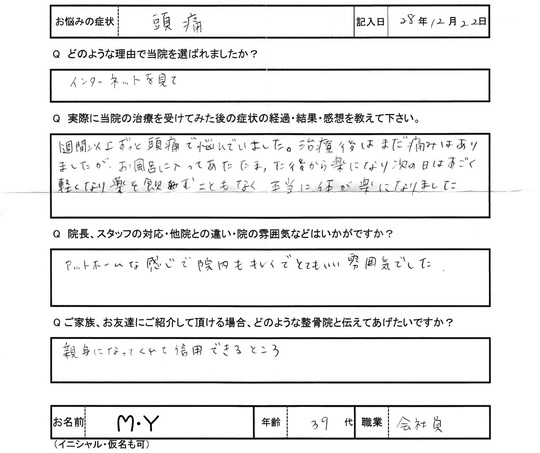 お悩みの症状 頭痛 記入日 28年12月22日
Q どのような理由で当院を選ばれましたか？
インターネットを見て
Q 実際に当院の治療を受けてみた後の症状の経過・結果・感想を教えて下さい。
1週間以上ずっと頭痛で悩んでいました。治療後はまだ痛みはあり
ましたが、お風呂に入ってあたたまった後から楽になり次の日はすごく
軽くなり薬を飲むこともなく本当に体が楽になりました
Q 院長、スタッフの対応・他院との違い・院の雰囲気などはいかがですか？
アットホームな感じで院内もキレイでとてもいい雰囲気でした.
Q ご家族、お友達にご紹介して頂ける場合、どのような整骨院と伝えてあげたいですか？
親身になってくれて信用できるところ
お名前 M・Y 年齢 39代 職業 会社員
(イニシャル・仮名も可)